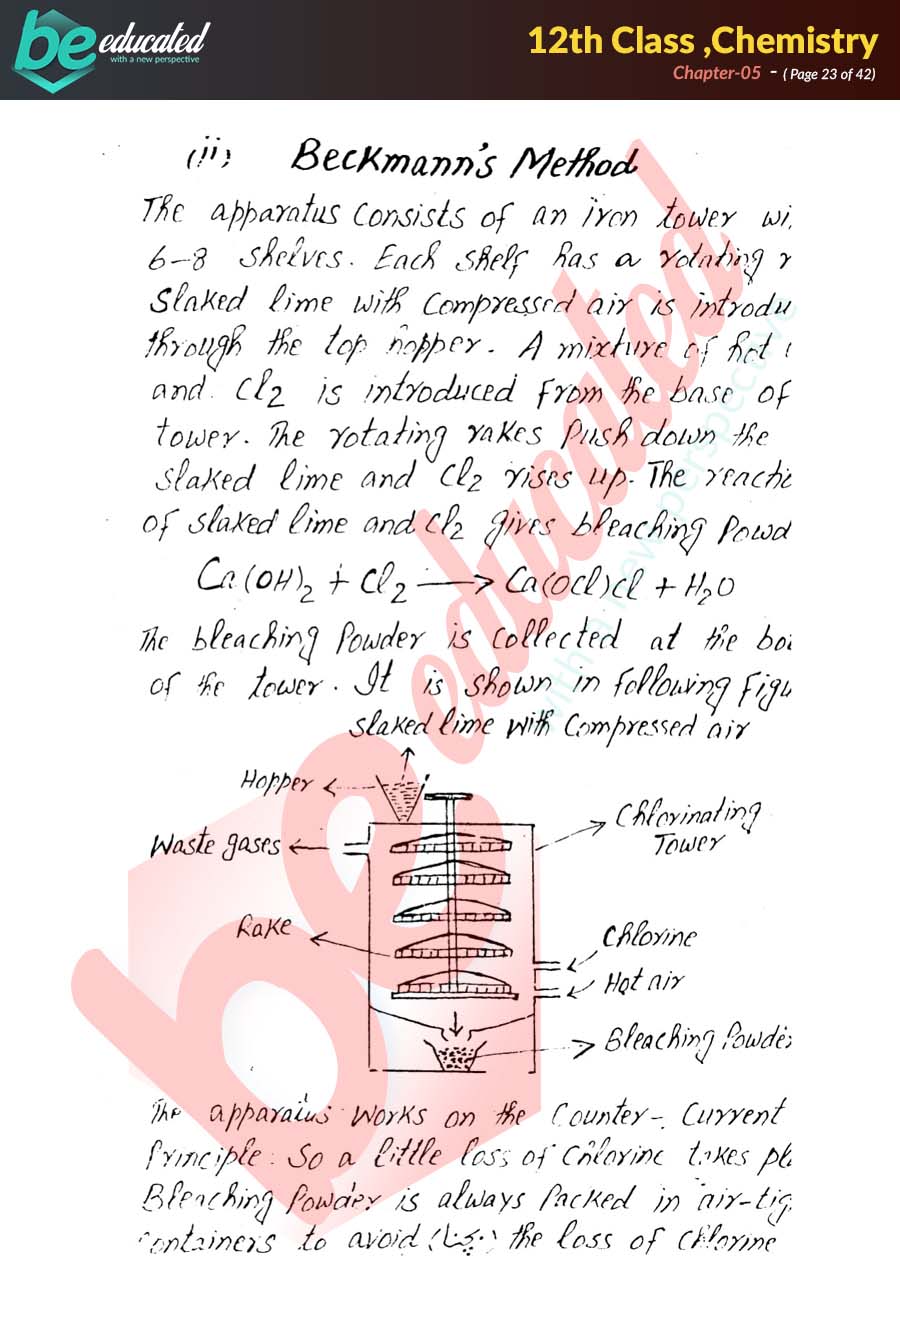 be educated
with a new perspective
12th Class ,Chemistry
Chapter-05 - ( Page 23 of 42)
(ii) Beckmann's Method
The apparatus consists of an iron tower wi
6-8 shelves. Each shelf has a rotating r
Slaked lime with compressed air is introdu
through the top hopper. A mixture of hot
and Cl2 is introduced from the base of
tower. The rotating rakes push down the
slaked lime and Cl2 rises up. The reactio
of slaked lime and Cl2 gives bleaching powd
Ca(OH)2 + Cl2 → Ca(OCl)Cl + H2O
The bleaching powder is collected at the bo
of the tower. It is shown in following Figu
slaked lime with compressed air
Hopper
Chlorinating
Tower
Waste gases
Rake
Chlorine
Hot air
Bleaching Powder
The apparatus works on the Counter-Current
Principle. So a little loss of chlorine takes pl
Bleaching Powder is always packed in air-tig
containers to avoid the loss of chlorine
be educated
with a new perspective